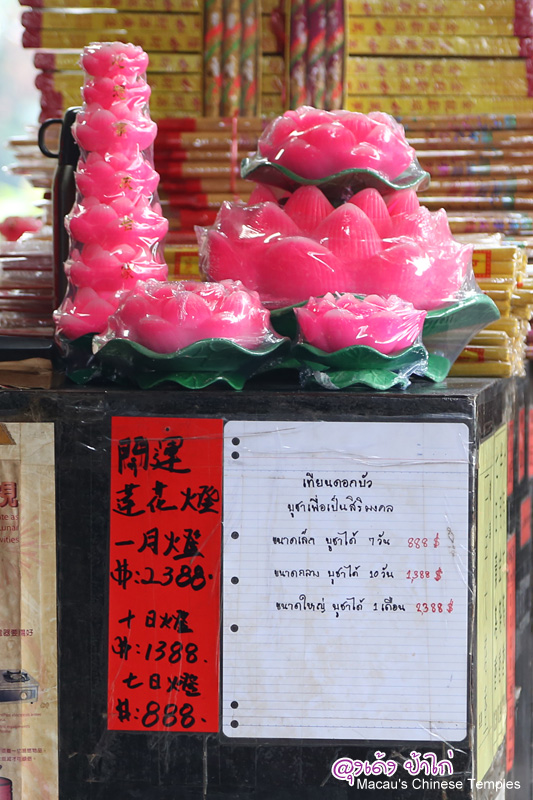 開運
蓮花燈
一月燈
$:2388.
十日燈
$:1388.
七日燈
$:888.
เทียนดอกบัว
บูชาเพื่อเป็นสิริมงคล
ขนาดเล็ก บูชาได้ 7 วัน 888 $
ขนาดกลาง บูชาได้ 10 วัน 1,388 $
ขนาดใหญ่ บูชาได้ 1 เดือน 2,388 $
ลุงเด้ง ป้าไก่
Macau's Chinese Temples